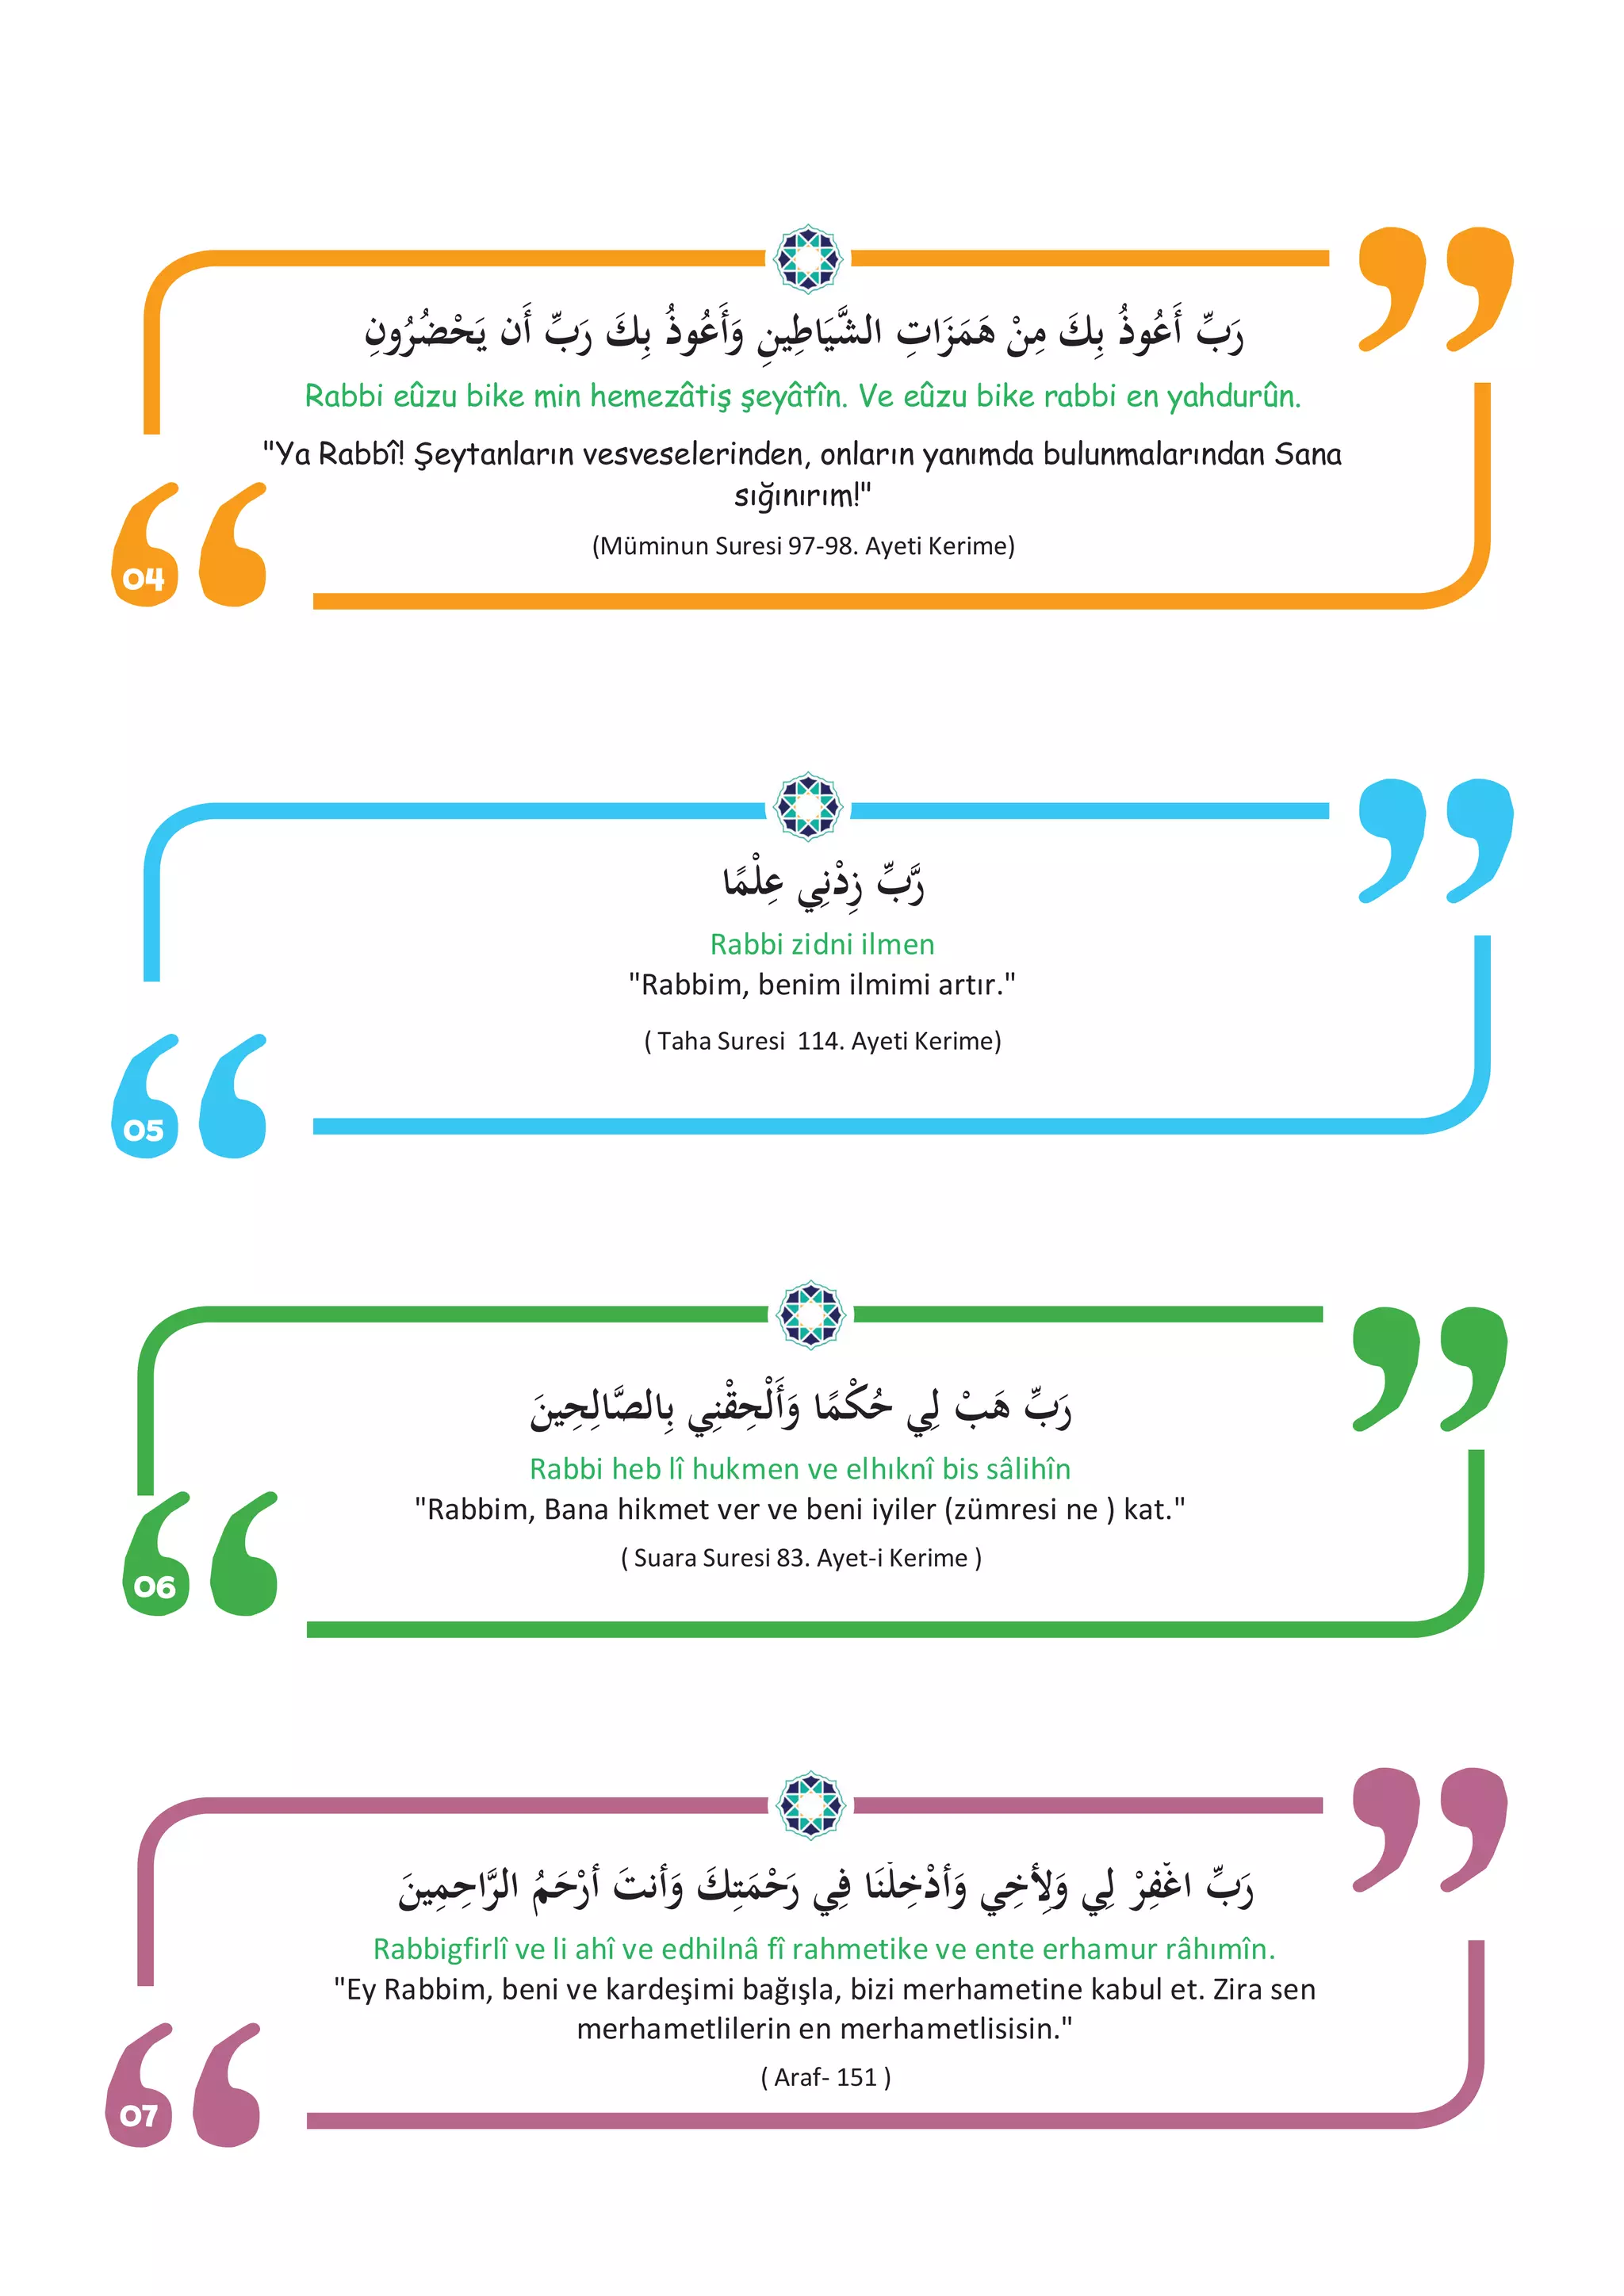 رَبِّ أَعُوذُ بِكَ مِنْ هَمَزَاتِ الشَّيَاطِينِ وَأَعُوذُ بِكَ رَبِّ أَن يَحْضُرُونِ
Rabbi eûzu bike min hemezâtiş şeyâtîn. Ve eûzu bike rabbi en yahdurûn.
"Ya Rabbî! Şeytanların vesveselerinden, onların yanımda bulunmalarından Sana
sığınırım!"
(Müminun Suresi 97-98. Ayeti Kerime)
04
رَّبِّ زِدْنِي عِلْمًا
Rabbi zidni ilmen
"Rabbim, benim ilmimi artır."
( Taha Suresi 114. Ayeti Kerime)
05
رَبِّ هَبْ لِي حُكْمًا وَأَلْحِقْنِي بِالصَّالِحِينَ
Rabbi heb lî hukmen ve elhıknî bis sâlihîn
"Rabbim, Bana hikmet ver ve beni iyiler (zümresi ne ) kat."
( Suara Suresi 83. Ayet-i Kerime )
06
رَبِّ اغْفِرْ لِي وَلِأَخِي وَأَدْخِلْنَا فِي رَحْمَتِكَ وَأَنتَ أَرْحَمُ الرَّاحِمِينَ
Rabbigfirlî ve li ahî ve edhilnâ fî rahmetike ve ente erhamur râhımîn.
"Ey Rabbim, beni ve kardeşimi bağışla, bizi merhametine kabul et. Zira sen
merhametlilerin en merhametlisisin."
( Araf- 151 )
07